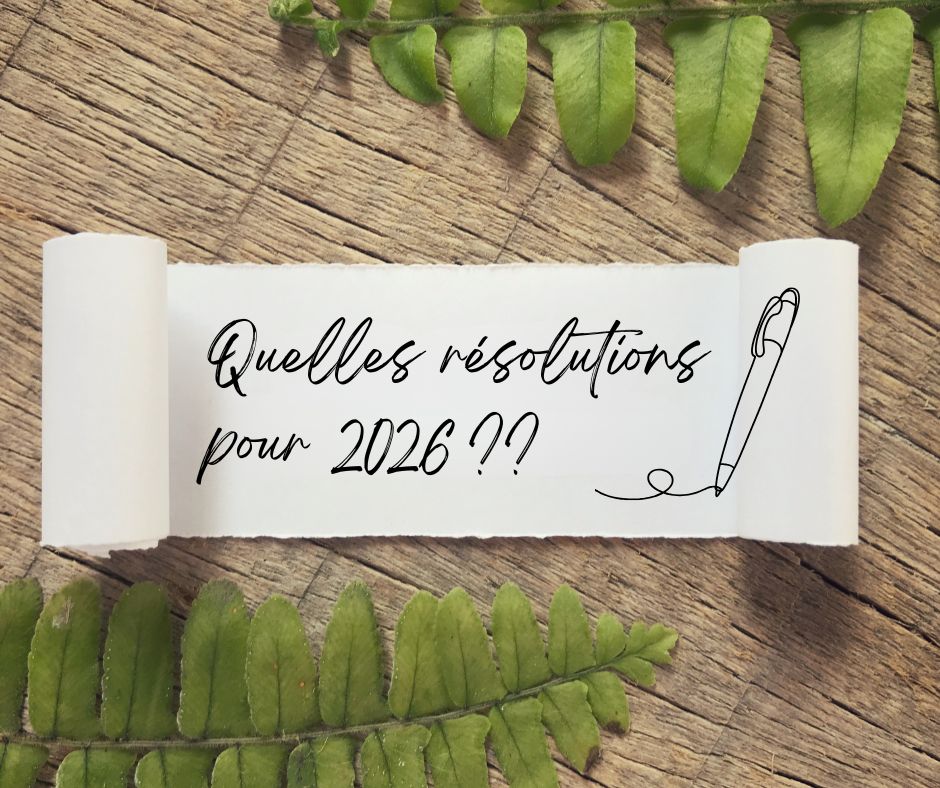 Quelles résolutions
pour 2026 ??